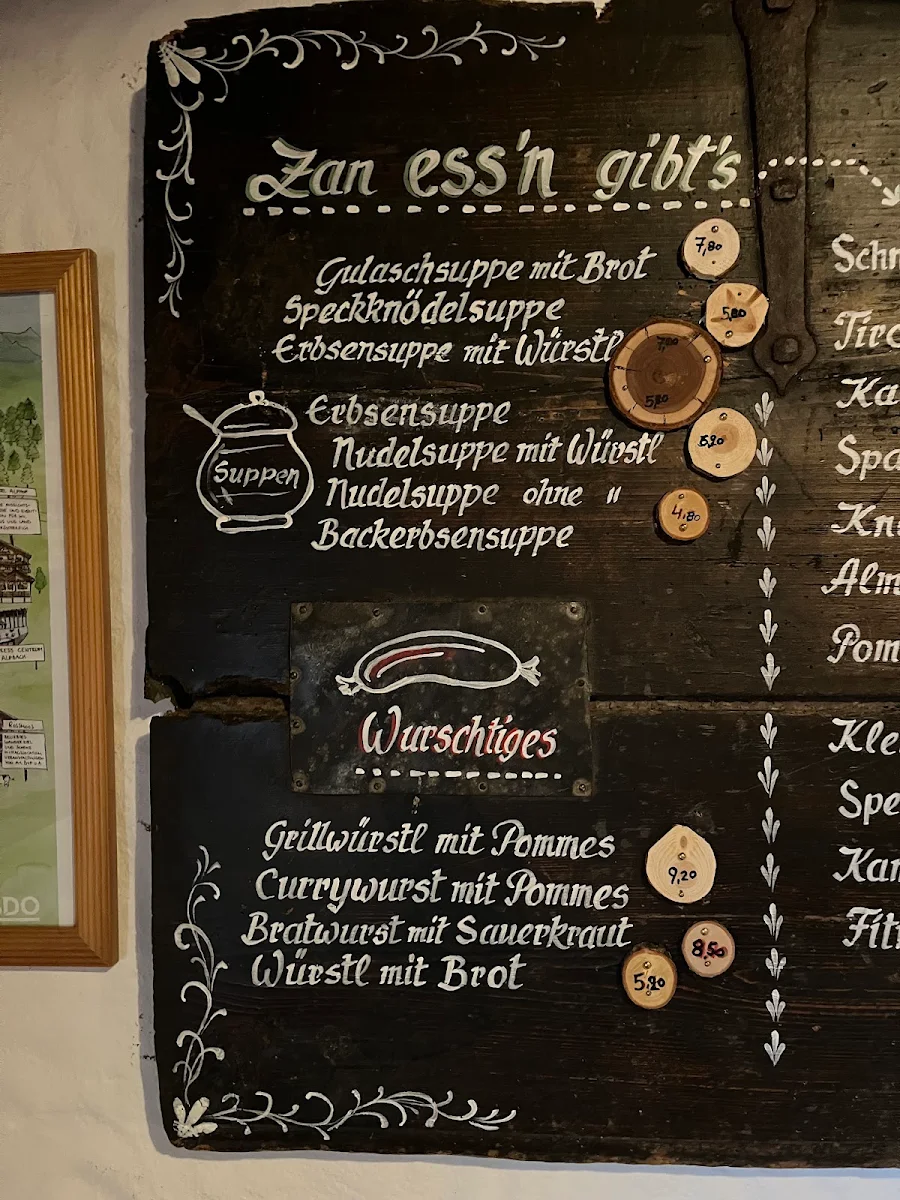 Zan ess'n gibt's
Gulaschsuppe mit Brot 7,80
Speckknödelsuppe 5,80
Erbsensuppe mit Würstl 7,80
Suppen
Erbsensuppe 5,80
Nudelsuppe mit Würstl
Nudelsuppe ohne "
Backerbsensuppe 4,80
Wurschtiges
Grillwürstl mit Pommes
Currywurst mit Pommes 9,20
Bratwurst mit Sauerkraut 8,50
Würstl mit Brot
Schn
Tiro
Ka
Spa
Kn
Alm
Pom
Kle
Spe
Kar
Fit